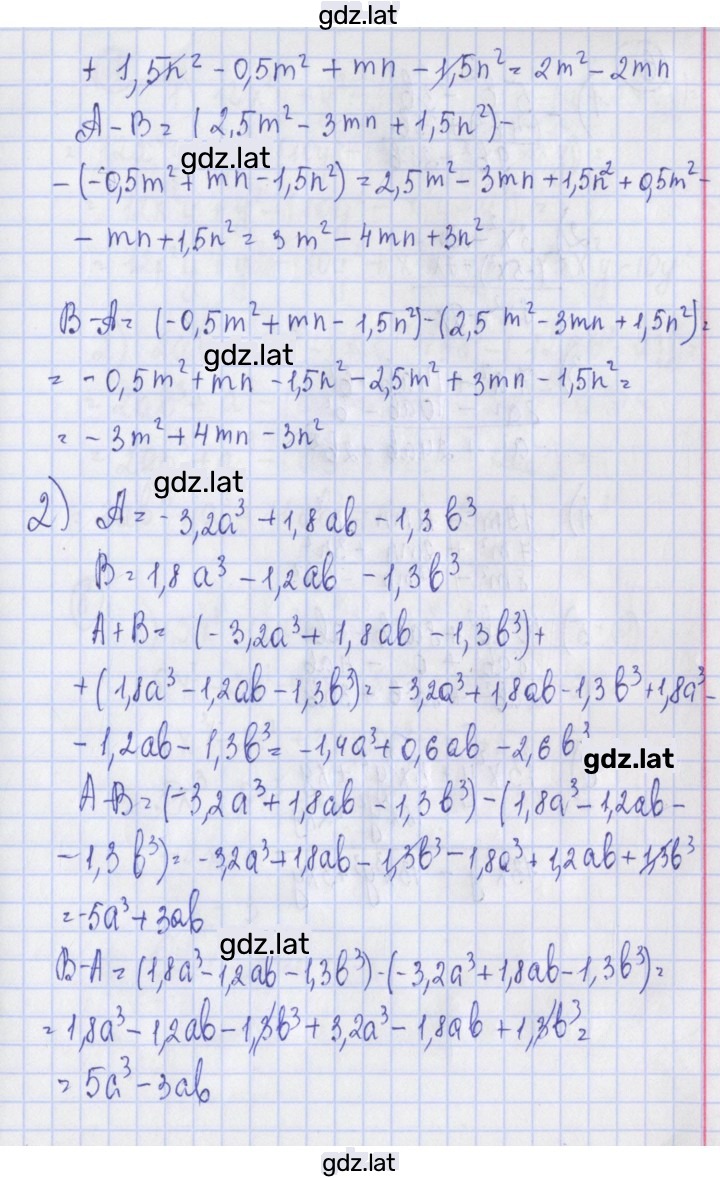 gdz.lat
+ 1,5n² - 0,5m² + mn - 1,5n² = 2m² - 2mn
A - B = (2,5m² - 3mn + 1,5n²) -
gdz.lat
- (-0,5m² + mn - 1,5n²) = 2,5m² - 3mn + 1,5n² + 0,5m² -
- mn + 1,5n² = 3m² - 4mn + 3n²
B - A = (-0,5m² + mn - 1,5n²) - (2,5m² - 3mn + 1,5n²) =
gdz.lat
= - 0,5m² + mn - 1,5n² - 2,5m² + 3mn - 1,5n² =
= - 3m² + 4mn - 3n²
gdz.lat
2) A = - 3,2a³ + 1,8ab - 1,3b³
B = 1,8a³ - 1,2ab - 1,3b³
A + B = (- 3,2a³ + 1,8ab - 1,3b³) +
+ (1,8a³ - 1,2ab - 1,3b³) = - 3,2a³ + 1,8ab - 1,3b³ + 1,8a³ -
- 1,2ab - 1,3b³ = -1,4a³ + 0,6ab - 2,6b³
gdz.lat
A - B = (-3,2a³ + 1,8ab - 1,3b³) - (1,8a³ - 1,2ab -
- 1,3b³) = - 3,2a³ + 1,8ab - 1,3b³ - 1,8a³ + 1,2ab + 1,3b³
= -5a³ + 3ab
gdz.lat
B - A = (1,8a³ - 1,2ab - 1,3b³) - (-3,2a³ + 1,8ab - 1,3b³) =
= 1,8a³ - 1,2ab - 1,3b³ + 3,2a³ - 1,8ab + 1,3b³ =
= 5a³ - 3ab
gdz.lat